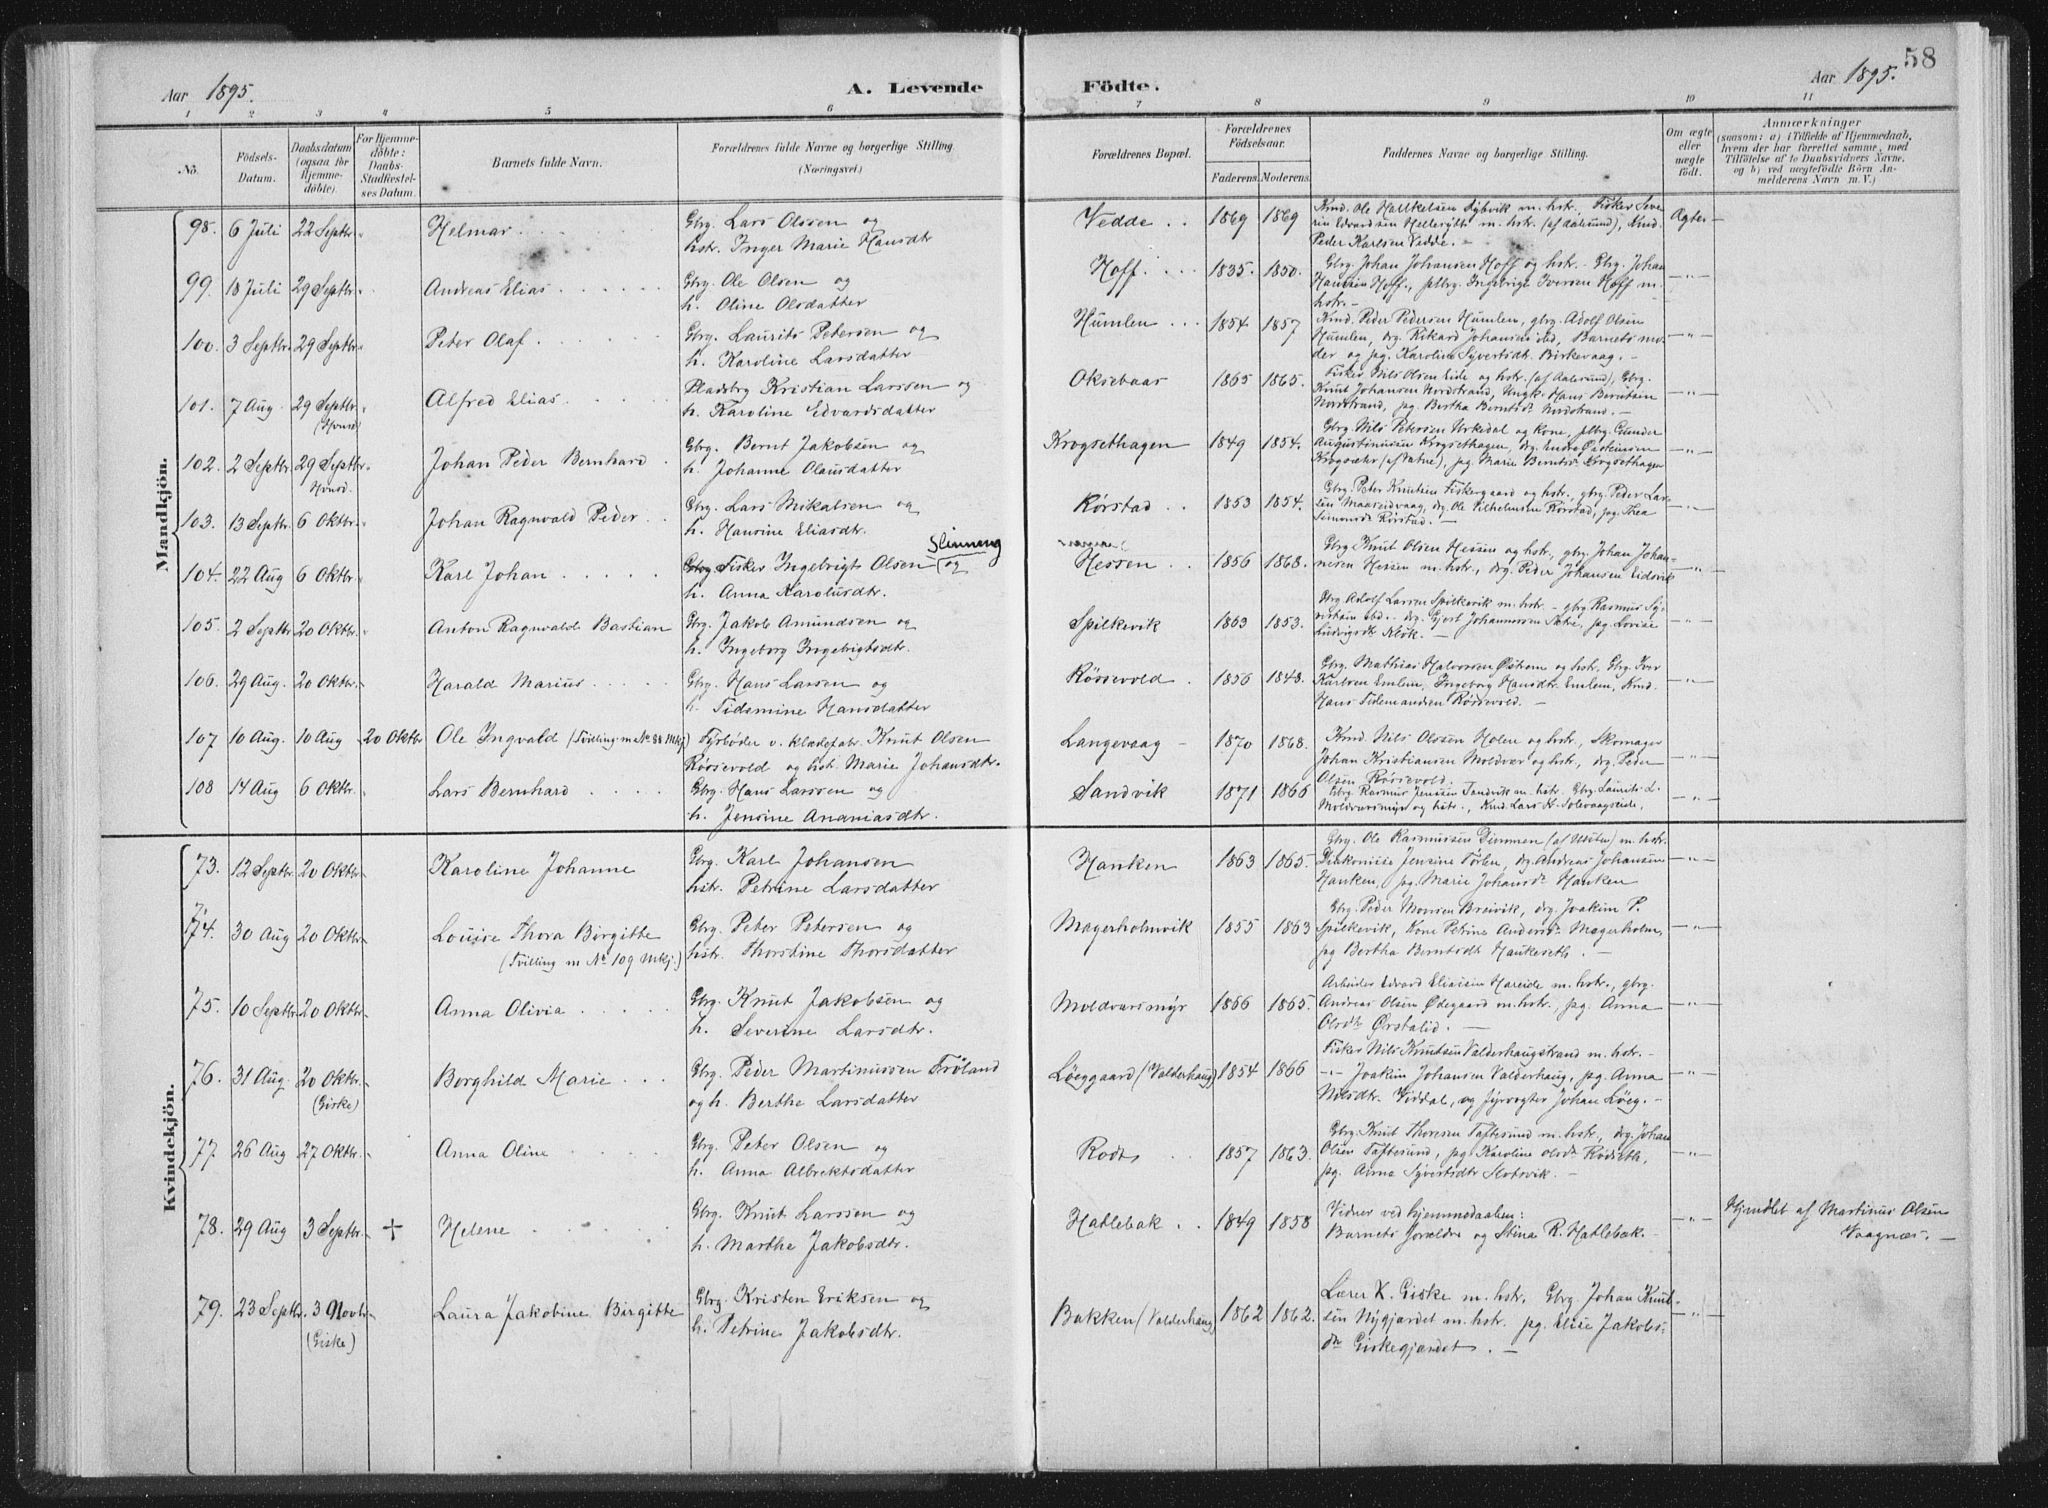 58
Aar 1895. A. Levende Födte. Aar 1895.
1 2 3 4 5 6 7 8 9 10 11
No. Födsels-Datum. Daabsdatum (ogsaa for Hjemme-döbte). For Hjemme-döbte: Daabs-Stadfæstel-ses Datum. Barnets fulde Navn. Forældrenes fulde Navne og borgerlige Stilling. (Næringsvei.) Forældrenes Bopæl. Forældrenes Födselsaar. Faderens. Moderens. Faddernes Navne og borgerlige Stilling. Om ægte eller uægte födt. Anmærkninger (saasom: a) i Tilfælde af Hjemmedaab, hvem der har forrettet samme, med Tilföielse af to Daabsvidners Navne, og b) ved uægtefödte Börn An-melderens Navn m. V.)
Mandkjön.
98. 6 Juli 22 Septbr. Helmar Gbrg. Lars Olssen og
hstr. Inger Marie Hansdtr
Vedde 1869 1869 Kmd. Ole Hattkelsen m. hstr. Fisker Seve-
rin Edvardsen Hellesylt m. hstr. (af Aalesund), Kmd.
Peder Karlsen Vedde. Ægte
99. 18 Juli 29 Septbr. Andreas Elias Gbrg. Ole Olsen og
h. Oline Olsdatter
Hoff. 1835. 1850. Gbrg. Johan Johansen Hoff og hstr. - Gbrg. Johan
Hansen Hoff, Ingebrigt Iversen Hoff m.
hstr. -
100. 3 Septbr. 29 Septbr. Peter Olaf Gbrg. Laurits Petersen og
h. Karoline Larsdatter
Humlen 1854 1857 Kmd. Peder Pedersen Humlen, gbrg. Adolf Olsen
Humlen, drg. Rikard Johansen ibd, Barnets mo-
der og pg. Karoline Syvertsdtr. Birkevaag. -
101. 7 Aug. 29 Septbr. Alfred Elias Pladsbrg Kristian Larssen og
h. Karoline Edvardsdatter
Oksebaas 1865 1865. Fisker Nils Olsen Eide og hstr. (af Aalesund), Gbrg.
Knut Johansen Nordstrand, Ungk. Hans Berntsen
Nordstrand, pg. Bertha Berntsdtr Nordstrand. -
102. 2 Septbr. 29 Septbr. Johan Peder Bernhard Gbrg. Bernt Jakobsen og
h. Johanne Olausdatter
Krogsethagen 1849 1854. Gbrg. Nils Petersen Urkedal og Kone, Gunder
Augustinusen Krogsethagen, drg. Endre Øisteinsen
Krogsæter (af Vatne), pg. Marie Berntsdr Krogsethagen
103. 13 Septbr. 6 Oktbr. Johan Ragnvald Peder Gbrg. Lars Mikalsen og
h. Hansine Eliasdtr.
Rørstad 1853 1854. Gbrg. Peter Knutsen Fiskergaard og hstr., gbrg. Peder Lar-
sen Maaseidvaag, drg. Ole Vilhelmsen Rørstad, pg. Thea
Simonsdr Rørstad. -
104. 22 Aug 6 Oktbr. Karl Johan Gbrg Fisker Ingebrigt Olsen (Slinning og
h. Anna Karolusdtr.
Hessen 1856 1868. Gbrg. Knut Olsen Hessen og hstr., gbrg. Johan Johan-
nesen Hessen m. hstr., drg. Peder Johansen Eidsvik
105. 2 Septbr. 20 Oktbr. Anton Ragnvald Bastian Gbrg. Jakob Amundsen og
h. Ingeborg Ingebrigtsdtr.
Spilkevik 1863 1853. Gbrg Adolf Larsen Spilkevik m. hstr. - gbrg Rasmus Sy-
vertsen ibd. - drg. Gjert Johannessen Sætre, pg. Lovise
Ludvigsdtr Klok. -
106. 29 Aug. 20 Oktbr. Harald Marius Gbrg. Hans Larsen og
h. Tidemine Hansdatter
Røssevold. 1856 1848. Gbrg. Mathias Halvorsen Østrem og hstr, Gbrg. Iver
Karlsen Emlem, Ingeborg Hansdtr. Emlem, Kmd.
Hans Tidemandsen Røssevold. -
107 10 Aug. 10 Aug 20 Oktbr Ole Ingvald (Tvilling m No 88 Mkj) Fyrbøder v. klædefabr. Knut Olsen
Røssevold og hstr. Marie Johansdtr.
Langevaag 1870 1868. Kmd. Nils Olssen Holen og hstr., Skomager
Johan Kristiansen Moldvær og hstr., drg. Peder
Olsen Røssevold.
108 14 Aug 6 Oktbr. Lars Bernhard Gbrg. Hans Larssen og
h. Jensine Ananiasdtr.
Sandvik 1871 1866 Gbrg. Rasmus Jensen Sandvik m. hstr. Gbrg. Laurits L.
Moldværsmyr og hstr., Kmd. Lars H. Solevaagseide,
Kvindekjön.
73. 12 Septbr. 20 Oktbr. Karoline Johanne Gbrg. Karl Johansen
hstr. Petrine Larsdatter
Hanken 1863 1865. Gbrg. Ole Rasmussen Dimmen (af Ulsten) m. hstr.
Diakonisse Jensine Tørlen, drg. Andreas Johansen
Hanken, pg. Marie Johansdr Hanken
74. 30 Aug 20 Oktbr. Louise Thora Birgitte
(Tvilling m No 109 Mkj.) Gbrg. Peter Petersen og
hstr. Thorstine Thorsdatter
Magerholmvik 1855 1863 Gbrg. Peder Monsen Breivik, drg. Joakim P.
Spilkevik, Kone Petrine Andersdr Magerholm,
pg Bertha Berntsdt Haukeseth. -
75. 10 Septbr. 20 Oktbr. Anna Olivia Gbrg. Knut Jakobsen og
h. Severine Larsdtr.
Moldværsmyr 1866 1865. Arbeider Edvard Eliassen Hareide m. hstr., gbrg.
Andreas Olsen Ødegaard m. hstr., pg. Anna
Olsdr Ørstalid. -
76. 31 Aug. 20 Oktbr. (Giske) Borghild Marie Gbrg. Peder Martinussen Frøland
og h. Berthe Larsdatter
Løeggaard (Valderhaug) 1854 1866 Fisker Nils Knutsen Valderhaugstrand m. hstr. -
-"- Joakim Johansen Valderhaug, pg. Anna
Nilsdtr. Viddal, og fyrvogter Johan Løeg. -
77. 26 Aug 27 Oktbr. Anna Oline Gbrg. Peter Olsen og
h. Anna Albrektsdatter
Rødt 1857 1863. Gbrg. Knut Thoresen Taftesund m. hstr., drg. Johan
Olsen Taftesund, pg Karoline Olsdr Rødseth,
pg. Anna Syvertsdtr Slotsvik. -
78. 29 Aug 3 Septbr. + Helene Gbrg. Knut Larssen og
h. Marthe Jakobsdtr.
Hatlebak 1849 1858 Vidner ved hjemmedaaben:
Barnets forældre og Stina R. Hatlebak. -
Hjemdøbt af Martinus Olsen
Vaagnæs. -
79. 23 Septbr. 3 Novbr. (Giske) Laura Jakobine Birgitte Gbrg. Kristen Eriksen og
h. Petrine Jakobsdtr.
Bakken (Valderhaug) 1862 1862. Lærer K. Giske m. hstr. Gbrg. Johan Knut-
sen Nygjærdet m. hstr. pg. Elise Jakobs-
dtr Giskegjærdet. -